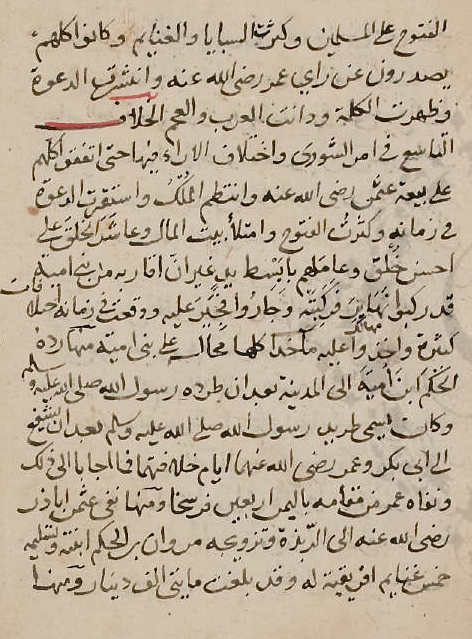 الفتوح على المسلمين وكثرت السبايا والغنايم وكانوا كلهم
يصدرون عن راى عمر رضى الله عنه وانتشرت الدعوة
وظهرت الكلمة ودانت العرب والعجم الخلاف
التاسع فى امر الشورى واختلاف الاراء فيها حتى اتفقوا كلهم
على بيعة عثمن رضى الله عنه وانتظم الملك واستقرت الدعوة
فى زمانه وكثرت الفتوح وامتلأ بيت المال وعاشر الخلق على
احسن خلق وعاملهم بابسط يد غير ان اقاربه من بنى امية
قد ركبوا نهابر فركبته وجاروا فجير عليه ووقعت فى زمانه اختلافات
كثيرة واخذوا عليه مآخذا كلها محالة على بنى امية منها رده
الحكم ابن امية الى المدينة بعد ان طرده رسول الله صلى الله عليه وسلم
وكان يسمى طريد رسول الله صلى الله عليه وسلم بعد ان تشفع
الى ابى بكر وعمر رضى الله عنهما ايام خلافتهما فما اجابا الى ذلك
ونفاه عمر من مقامه باليمن اربعين فرسخا ومنها نفى عثمن ابا ذر
رضى الله عنه الى الربذة وتزويجه مروان بن الحكم ابنته وتسليمه
خمس غنايم افريقية له وقد بلغت مايتى الف دينار ومنها